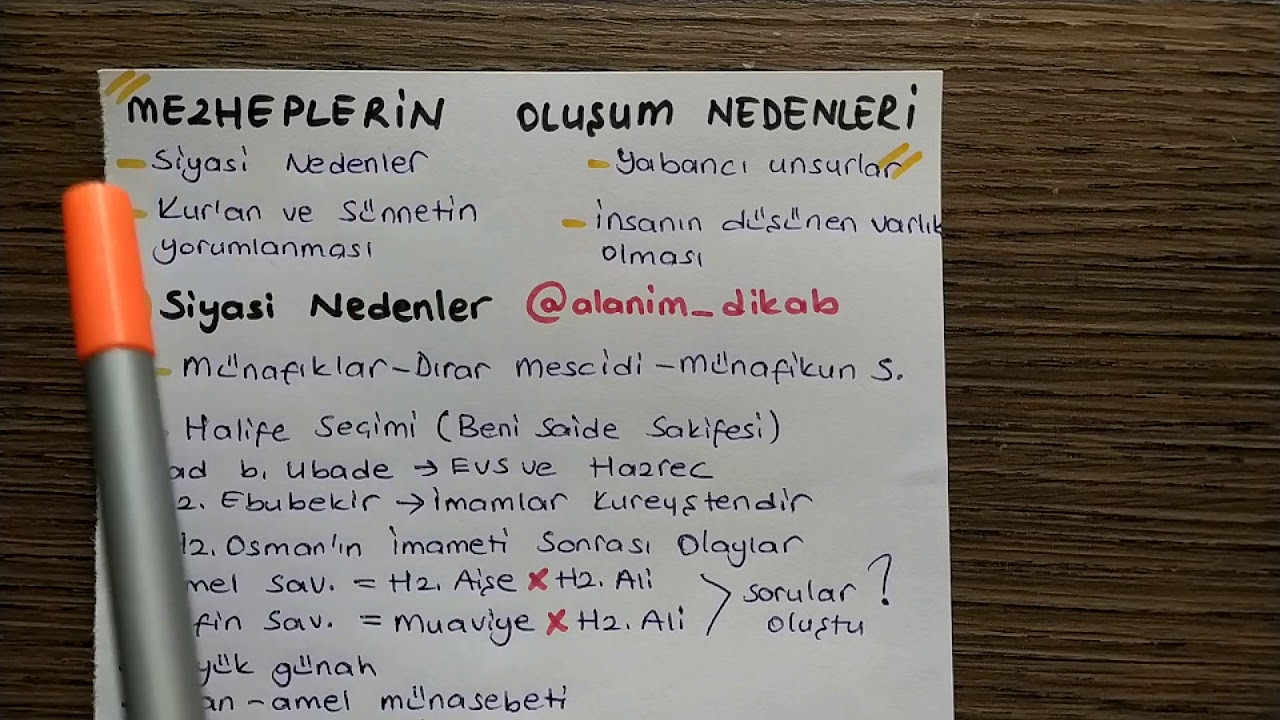 MEZHEPLERİN OLUŞUM NEDENLERİ
- Siyasi Nedenler - Yabancı unsurlar
- Kur'an ve Sünnetin - İnsanın düşünen varlık
yorumlanması olması
Siyasi Nedenler @alanim_dikab
- Münafıklar-Dırar mescidi-Münafikun S.
Halife Seçimi (Beni Saide Sakifesi)
b. Ubade → Evs ve Hazrec
Ebubekir → İmamlar Kureyştendir
Hz. Osman'ın İmameti Sonrası Olaylar
Sav. = Hz. Aişe x Hz. Ali > sorular ?
Sav. = Muaviye x Hz. Ali oluştu
günah
-amel münasebeti